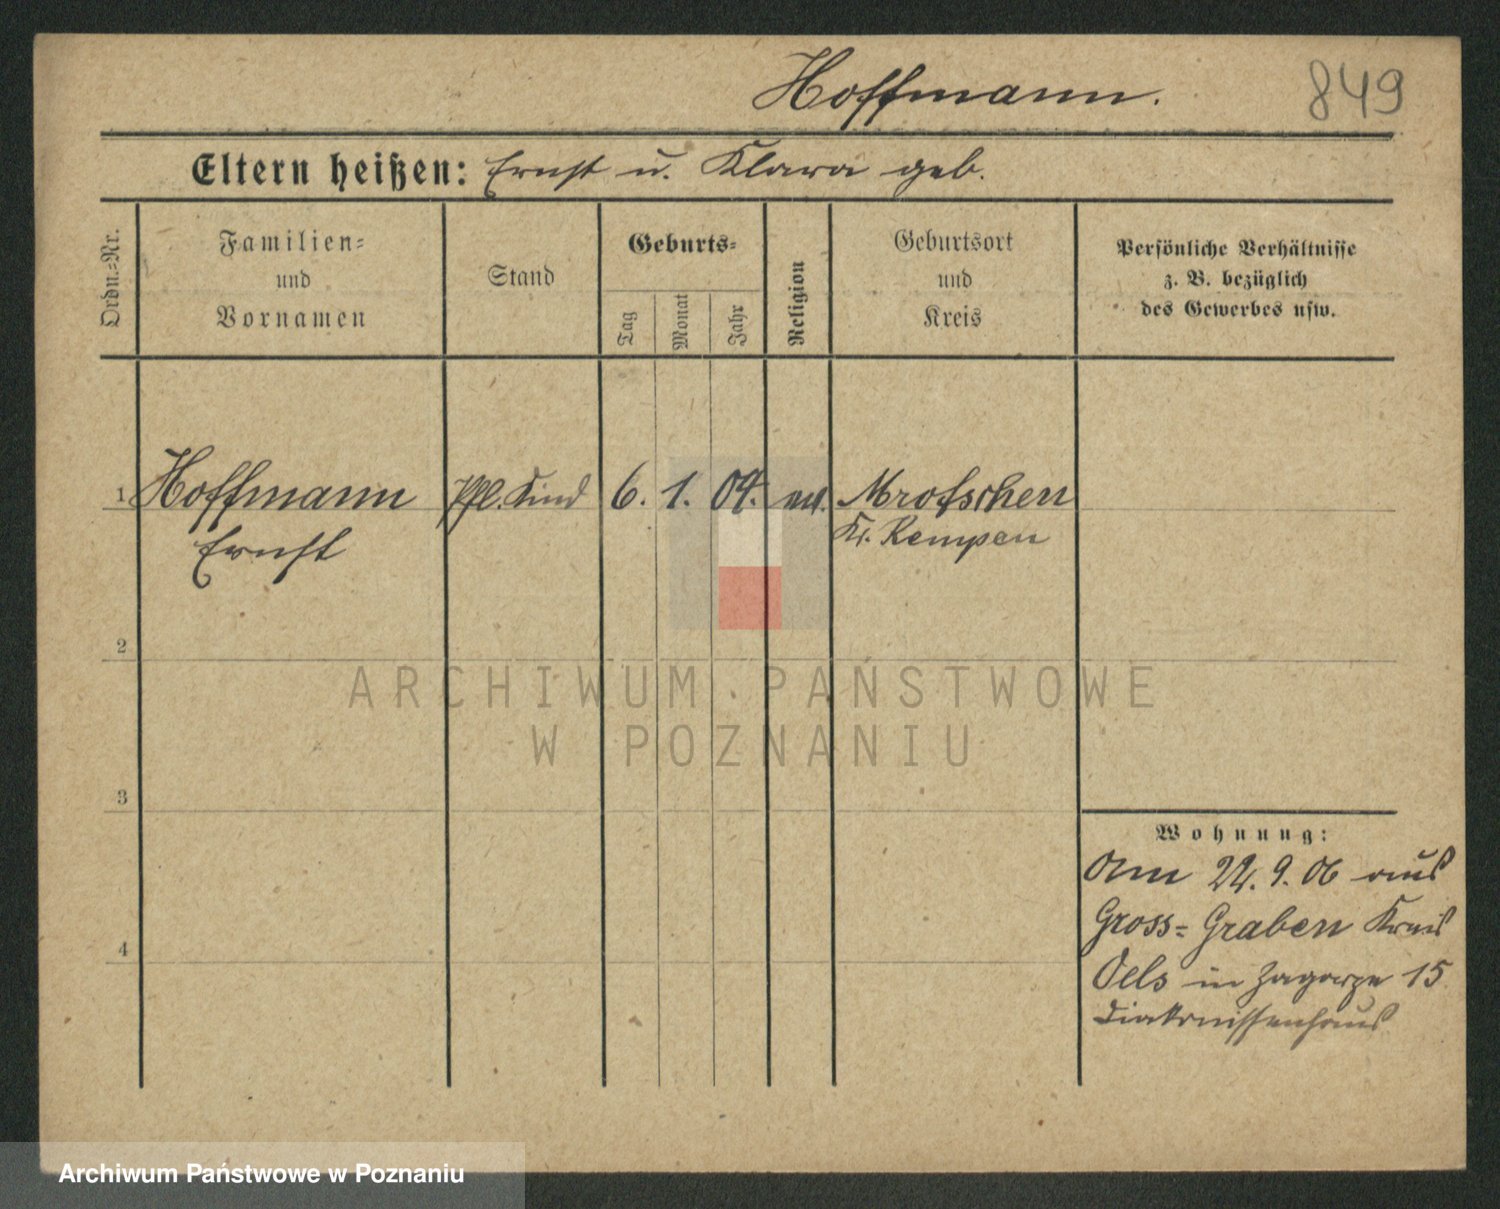 Hoffmann.
849
Eltern heißen: Ernst u. Klara geb.
Ordn.-Nr.
Familien-
und
Vornamen
Stand
Geburts-
Tag
Monat
Jahr
Religion
Geburtsort
und
Kreis
Persönliche Verhältnisse
z. B. bezüglich
des Gewerbes usw.
1 Hoffmann Pfl. Kind 6. 1. 04. Mrotschen
Ernst Kr. Kempen
2
ARCHIWUM PAŃSTWOWE
W POZNANIU
3
Wohnung:
Am 22. 9. 06 aus
Gross-Graben Kreis
4
Oels in Zagorze 15
Diakonissenhaus
Archiwum Państwowe w Poznaniu